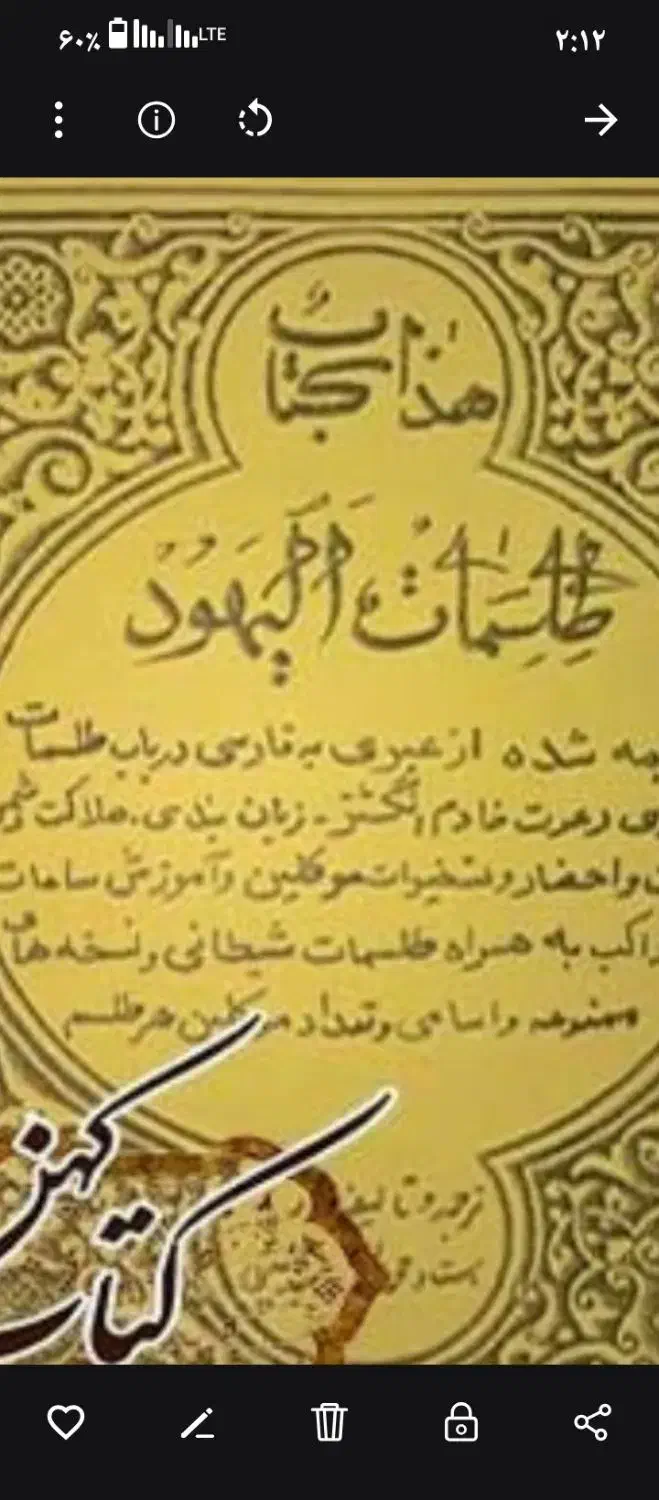 ۶۰٪ LTE ۲:۱۲
هذا کتاب
طلسمات الیهود
شده از عبری به فارسی در باب طلسمات
دعوت خادم انگشتر - زبان بندی . هلاکت
و احضار و تسخیرات موکلین و آموزش ساعات
به همراه طلسمات شیطانی و نسخه های
ممنوعه و اسامی و تعداد موکلین هر طلسم
ترجمه و تالیف
کتاب کهن